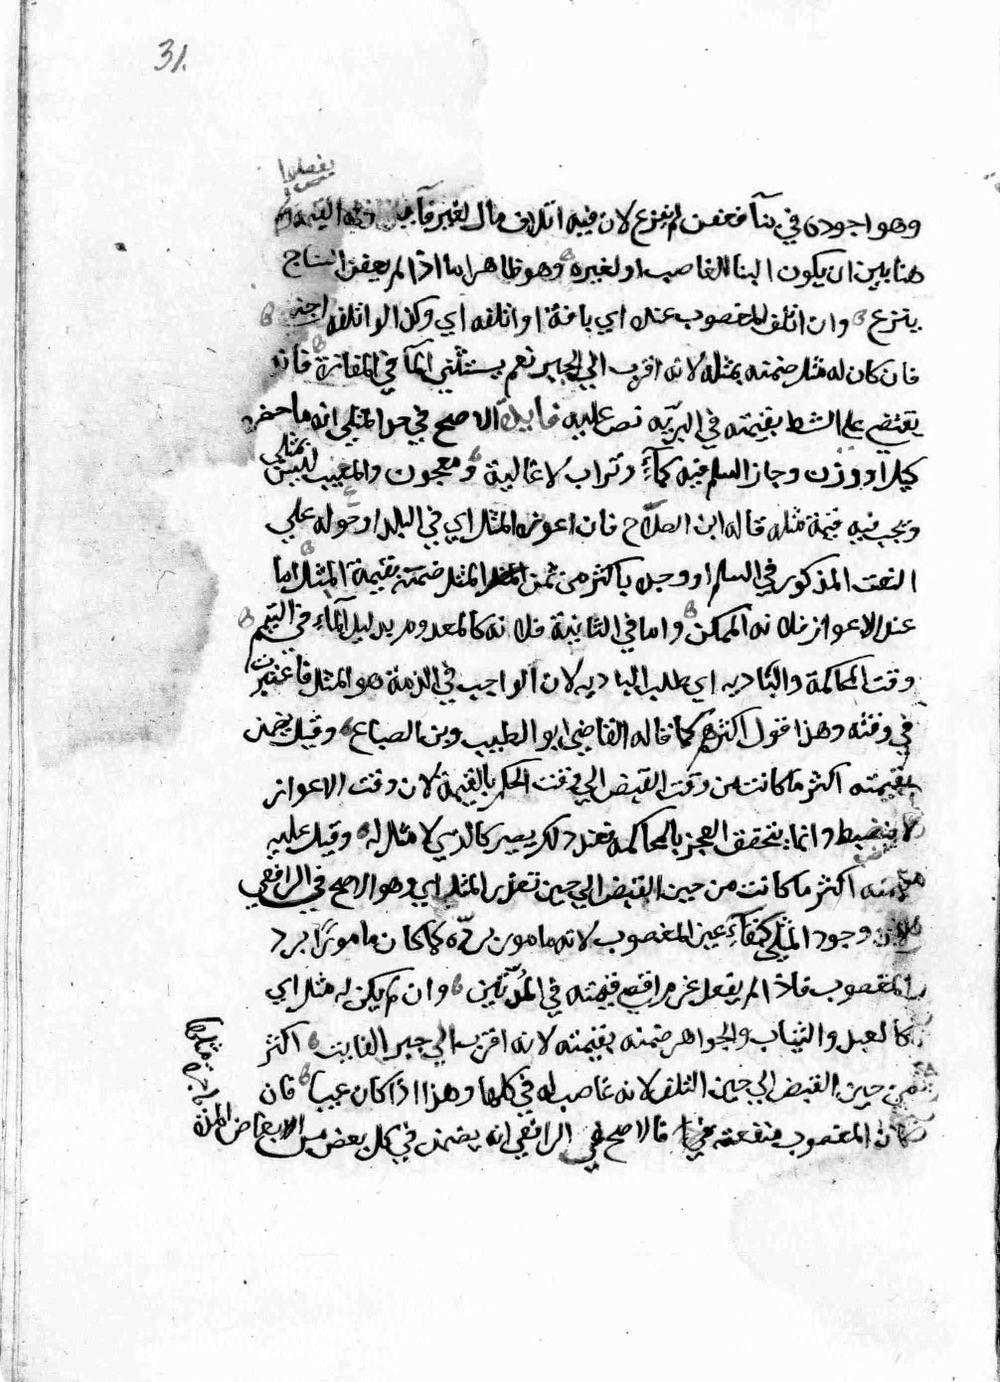 31.
يفصلوا
وهو اجودى في بنآ فعفن لم ينزع لان فيه اتلاف مال لغير فآيدة وفيه القيمة ولم
هنا بين ان يكون البنا للغاصب او لغيره وهو ظاهر اما اذا لم يعفن الساج
ينزع وان اتلف المغصوب عنده اي بافة او اتلفه اي وكذا لو اتلفه اجنبي
فان كان له مثل ضمنه بمثله لانه اقرب الي الجبر نعم يستثني المآ في المفازة فانه
يقتضي علي الشط بقيمته في البريه نص عليه فايدة الاصح في حد المثلي انه ما حصر
كيل او وزن وجاز السلم فيه كمآء وتراب لا غالية ومعجون والمعيب ليس بمثلي
ويجب فيه قيمة مثله قاله ابن الصلاح فان اعوزه المثل اي في البلد او حوله علي
النعت المذكور في السلم او وجده باكثر من ثمن المثل ضمنه بقيمة المثل اما
عند الاعواز فلانه الممكن واما في الثانية فلانه كالمعدوم بدليل المآء في التيمم
وقت المحاكمة والتاديه اي طلب التاديه لان الواجب في الذمة هو المثل فاعتبرت
في وقته وهذا قول اكثرهم كما قاله القاضي ابو الطيب وبن الصباغ وقيل يضمن
بقيمته اكثر ما كانت من وقت القبض الي وقت الحكم بالقيمة لان وقت الاعواز
لا ينضبط وانما يتحقق العجز بالمحاكمة فعند ذلك يصير كالذي لا مثل له وقيل عليه
قيمته اكثر ما كانت من حين القبض الي حين تعذر المثل اي وهو الاصح في الرافعي
لان وجود المثلي كبقآء عين المغصوب لانه مامور برده كما كان مامورا برد
المغصوب فاذا لم يفعل غرم اقصي قيمته في المدتين وان لم يكن له مثل اي
كالعبد والثياب والجواهر ضمنه بقيمته لانه اقرب الي جبر الفايت اكثر
من حين القبض الي حين التلف لانه غاصب له في كلها وهذا اذا كان عيبا فان
كان المغصوب منفعته فالاصح في الرافعي انه يضمن في كل بعض من الابعاض المدة
باجرة مثلها